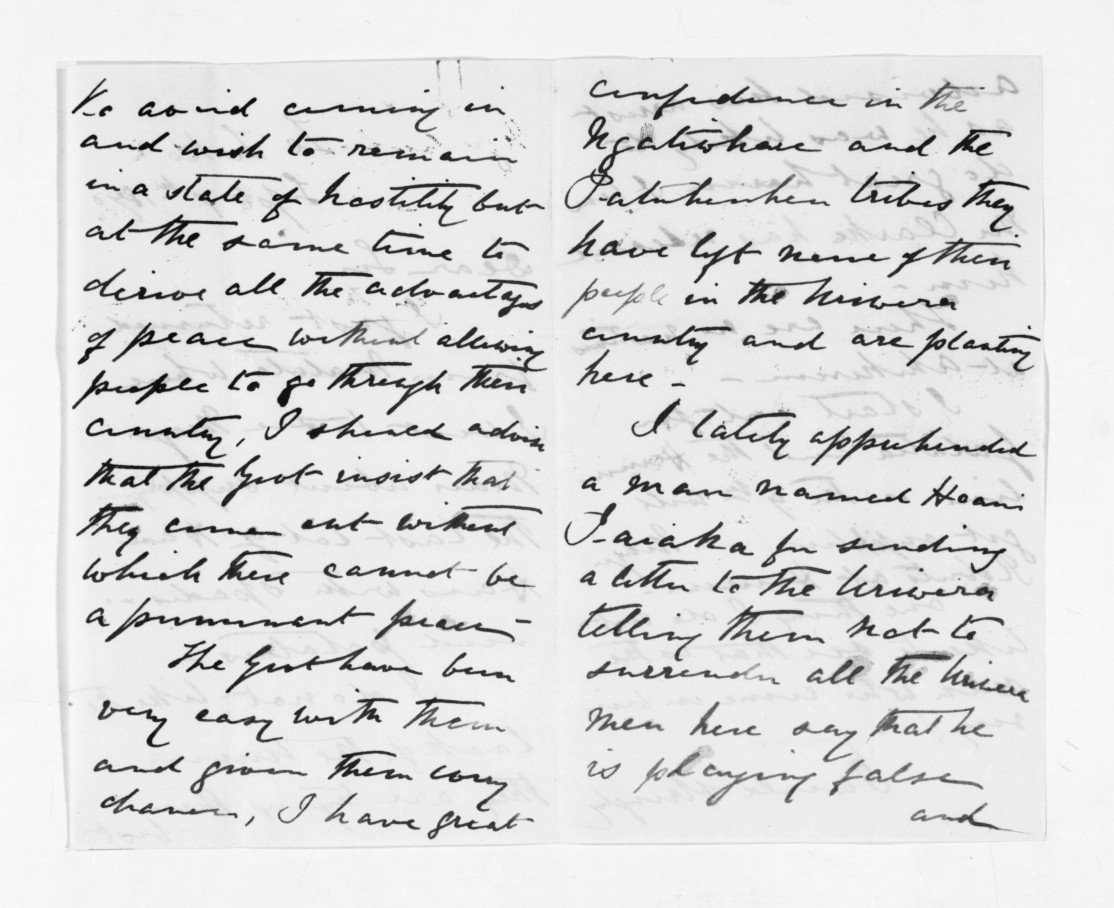 to avoid coming in
and wish to remain
in a state of hostility but
at the same time to
derive all the advantages
of peace without allowing
people to go through their
country, I should advise
that the Govt insist that
they come out without
which there cannot be
a permanent peace -
The Govt have been
very easy with them
and given them every
chance, I have great
confidence in the
Ngatiwhare and the
Patuheuheu tribes they
have left none of their
people in the Uriwera
country and are planting
here -
I lately apprehended
a man named Hoani
Paiaka for sending
a letter to the Uriwera
telling them not to
surrender all the Uriwera
men here say that he
is playing false
and